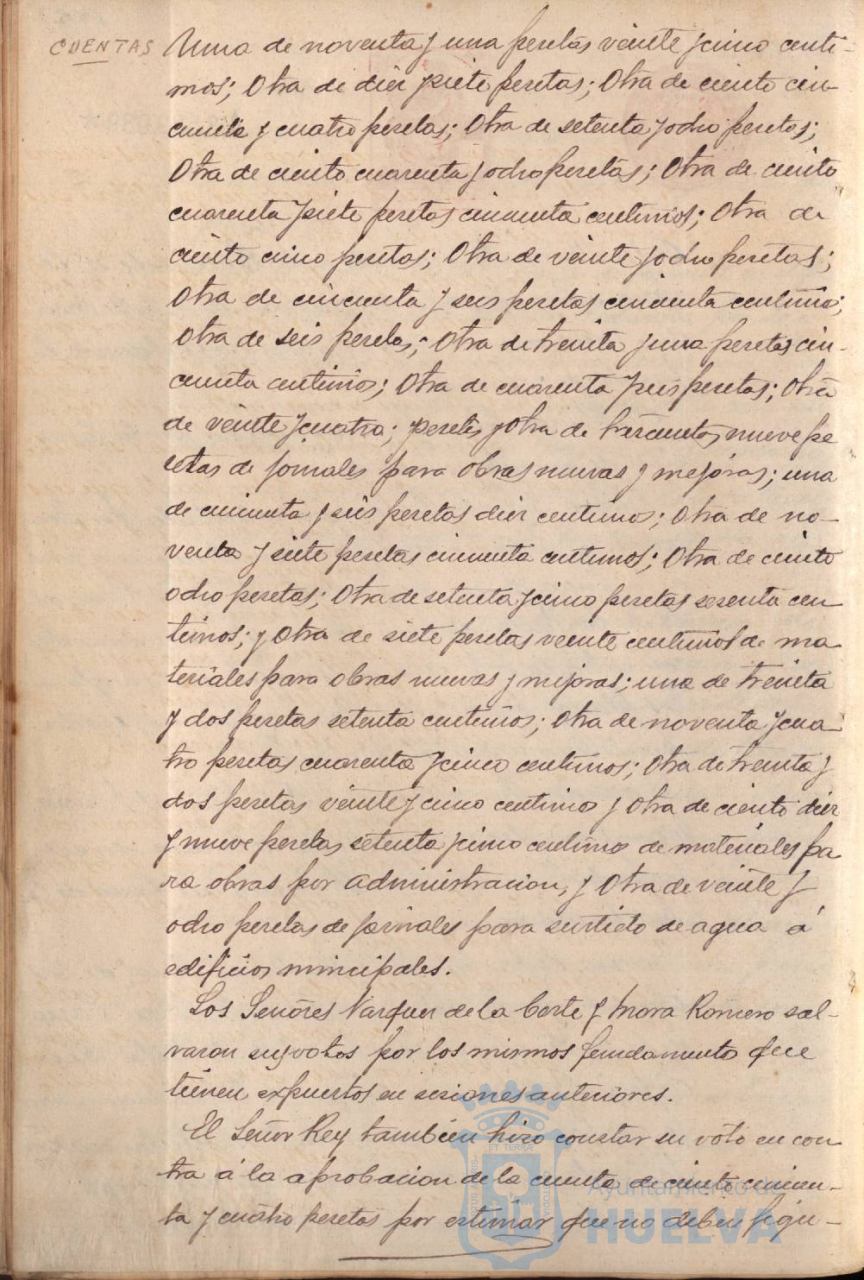 CUENTAS
Una de noventa y una pesetas veinte y cinco centi-
mos; Otra de diez y siete pesetas; Otra de ciento cin-
cuenta y cuatro pesetas; Otra de setenta y ocho pesetas;
Otra de ciento cuarenta y ocho pesetas; Otra de ciento
cuarenta y siete pesetas cincuenta centimos; Otra de
ciento cinco pesetas; Otra de veinte y ocho pesetas;
Otra de cincuenta y seis pesetas cincuenta centimos;
Otra de seis pesetas; Otra de treinta y una pesetas cin-
cuenta centimos; Otra de cuarenta y seis pesetas; Otra
de veinte y cuatro; pesetas y Otra de trescientas nueve pe
setas de jornales para obras nuevas y mejoras; una
de cincuenta y seis pesetas diez centimos; Otra de no-
venta y siete pesetas cincuenta centimos; Otra de ciento
ocho pesetas; Otra de setenta y cinco pesetas sesenta cen
timos; y Otra de siete pesetas veinte centimos de ma
teriales para obras nuevas y mejoras; una de treinta
y dos pesetas setenta centimos; Otra de noventa y cua-
tro pesetas cuarenta y cinco centimos; Otra de treinta y
dos pesetas veinte y cinco centimos y Otra de ciento diez
y nueve pesetas setenta y cinco centimos de materiales pa
ra obras por administracion, y Otra de veinte y
ocho pesetas de jornales para surtido de agua á
edificios minicipales.
Los Señores Vazquez de la Corte y Mora Romero sal-
varon sus votos por los mismos fundamento que
tienen expuestos en sesiones anteriores.
El Señor Rey tambien hizo constar su voto en con
tra á la aprobacion de la cuenta de ciento cincuen-
ta y cuatro pesetas por estimar que no deben figu-
Ayuntamiento de
HUELVA